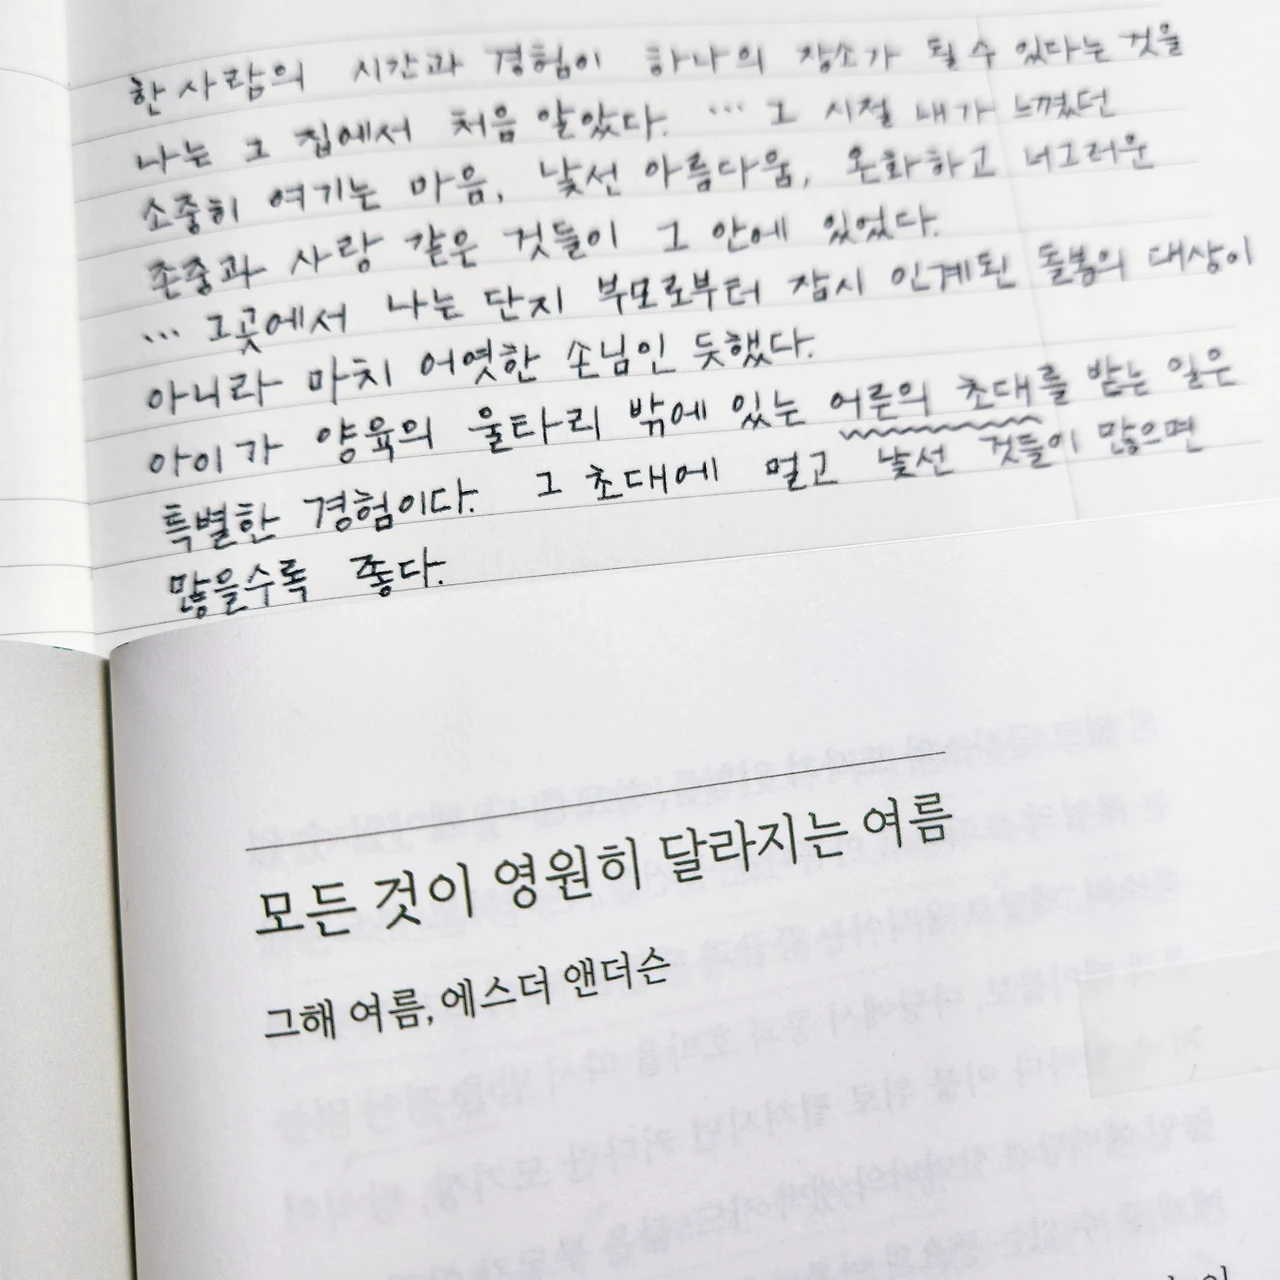 한 사람의 시간과 경험이 하나의 장소가 될 수 있다는 것을
나는 그 집에서 처음 알았다. … 그 시절 내가 느꼈던
소중히 여기는 마음, 낯선 아름다움, 온화하고 너그러운
존중과 사랑 같은 것들이 그 안에 있었다.
… 그곳에서 나는 단지 부모로부터 잠시 인계된 돌봄의 대상이
아니라 마치 어엿한 손님인 듯했다.
아이가 양육의 울타리 밖에 있는 어른의 초대를 받는 일은
특별한 경험이다. 그 초대에 멀고 낯선 것들이 많으면
많을수록 좋다.
모든 것이 영원히 달라지는 여름
그해 여름, 에스더 앤더슨